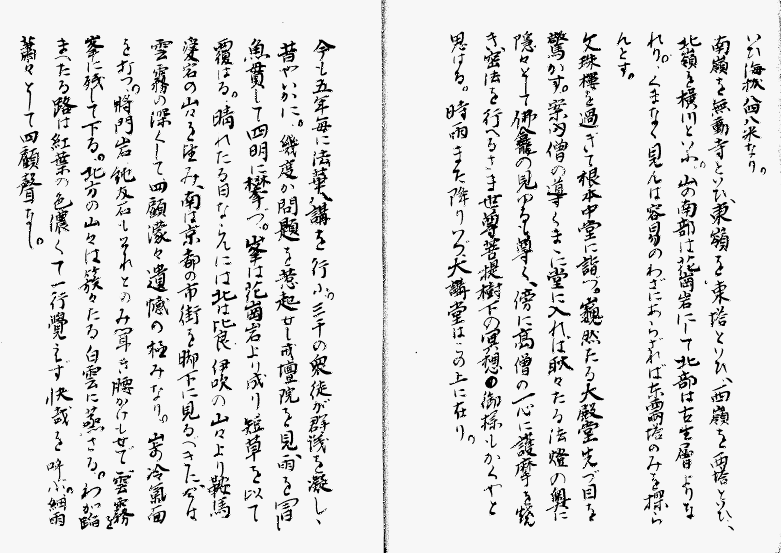 いひ海抜八百八米なり。
南嶺を無動寺といひ、東嶺を東塔といひ、西嶺を西塔といひ、
北嶺を横川といふ。山の南部は花崗岩にして北部は古生層よりな
れり。くまなく見んは容易のわざにあらざれば東西両塔のみを探ら
んとす。
文珠楼を過ぎて根本中堂に詣づ。巍然たる大殿堂先づ目を
驚かす。案内僧の導くまゝに堂に入れば耿々たる法燈の奥に
隠々として佛龕の見ゆるも尊く、傍に高僧の一心に護摩を焼
き密法を行へるさま世尊菩提樹下の冥想の御様もかくやと
思はる。時雨また降りいづ大講堂はこの上に在り。
今も五年毎に法華八講を行ふ。三千の衆徒が群議を凝し、
昔やいかに。幾度か問題を惹起せし戒壇院を見、雨を冒し
魚貫して四明に攀づ。峯は花崗岩より成り短草を以て
覆はる。晴れたる日ならんには北は比良伊吹の山々より鞍馬
愛宕の山々を望み、南は京都の市街を脚下に見るべきだが
雲霧の深くして四顧濛々遺憾の極みなり。山の冷氣面
を打つ。将門岩純友岩もそれとのみ耳き腰かけもせで雲霧を
峯に残して下る。北方の山々は簇々たる白雲に蒸さる。わが臨
まへたる路は紅葉の色濃くて一行覚えず快哉を呼ぶ。細雨
蕭々として四顧聲なし。